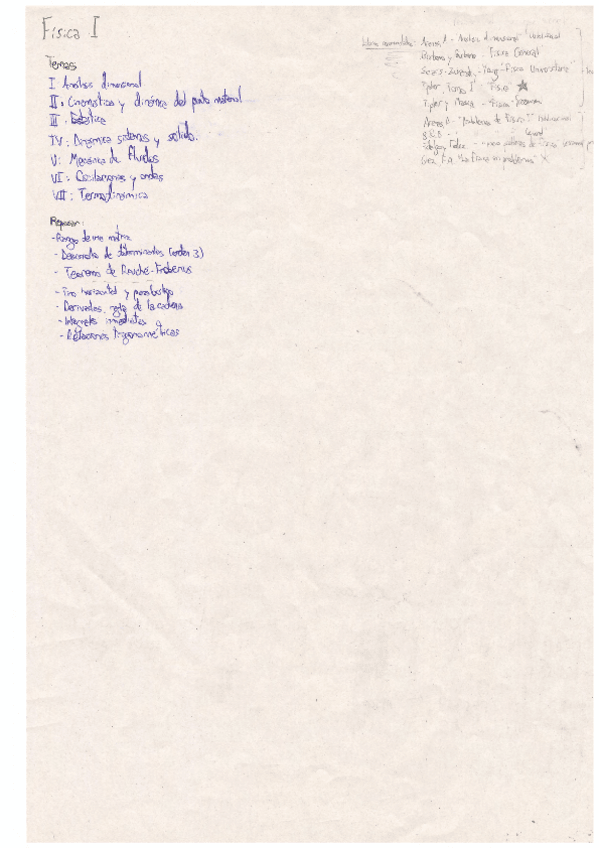 Física I
Temas
I Análisis dimensional
II: Cinemática y dinámica del punto material
III: Estática
IV: Dinámica sistemas y sólido.
V: Mecánica de Fluidos
VI: Oscilaciones y ondas
VII: Termodinámica
Repasar:
-Rango de una matriz
- Desarrollo de determinantes (orden 3)
- Teorema de Rouché-Frobenius
- Tiro horizontal y parabólico
- Derivadas, regla de la cadena
- Integrales inmediatas
- Relaciones trigonométricas
Libros recomendados:
- Análisis dimensional
Burbano y Burbano - Física General
Sears - Zemansky - Young "Física Universitaria"
Tipler Tomo I "Física"
Tipler y Mosca - "Física"
"Problemas de Física I"
"La Física en problemas" X